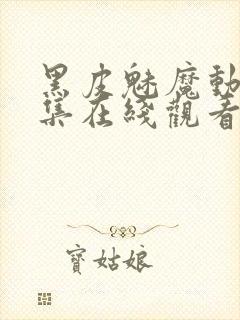 黑皮魅魔動
集在綫觀看
寶姑娘